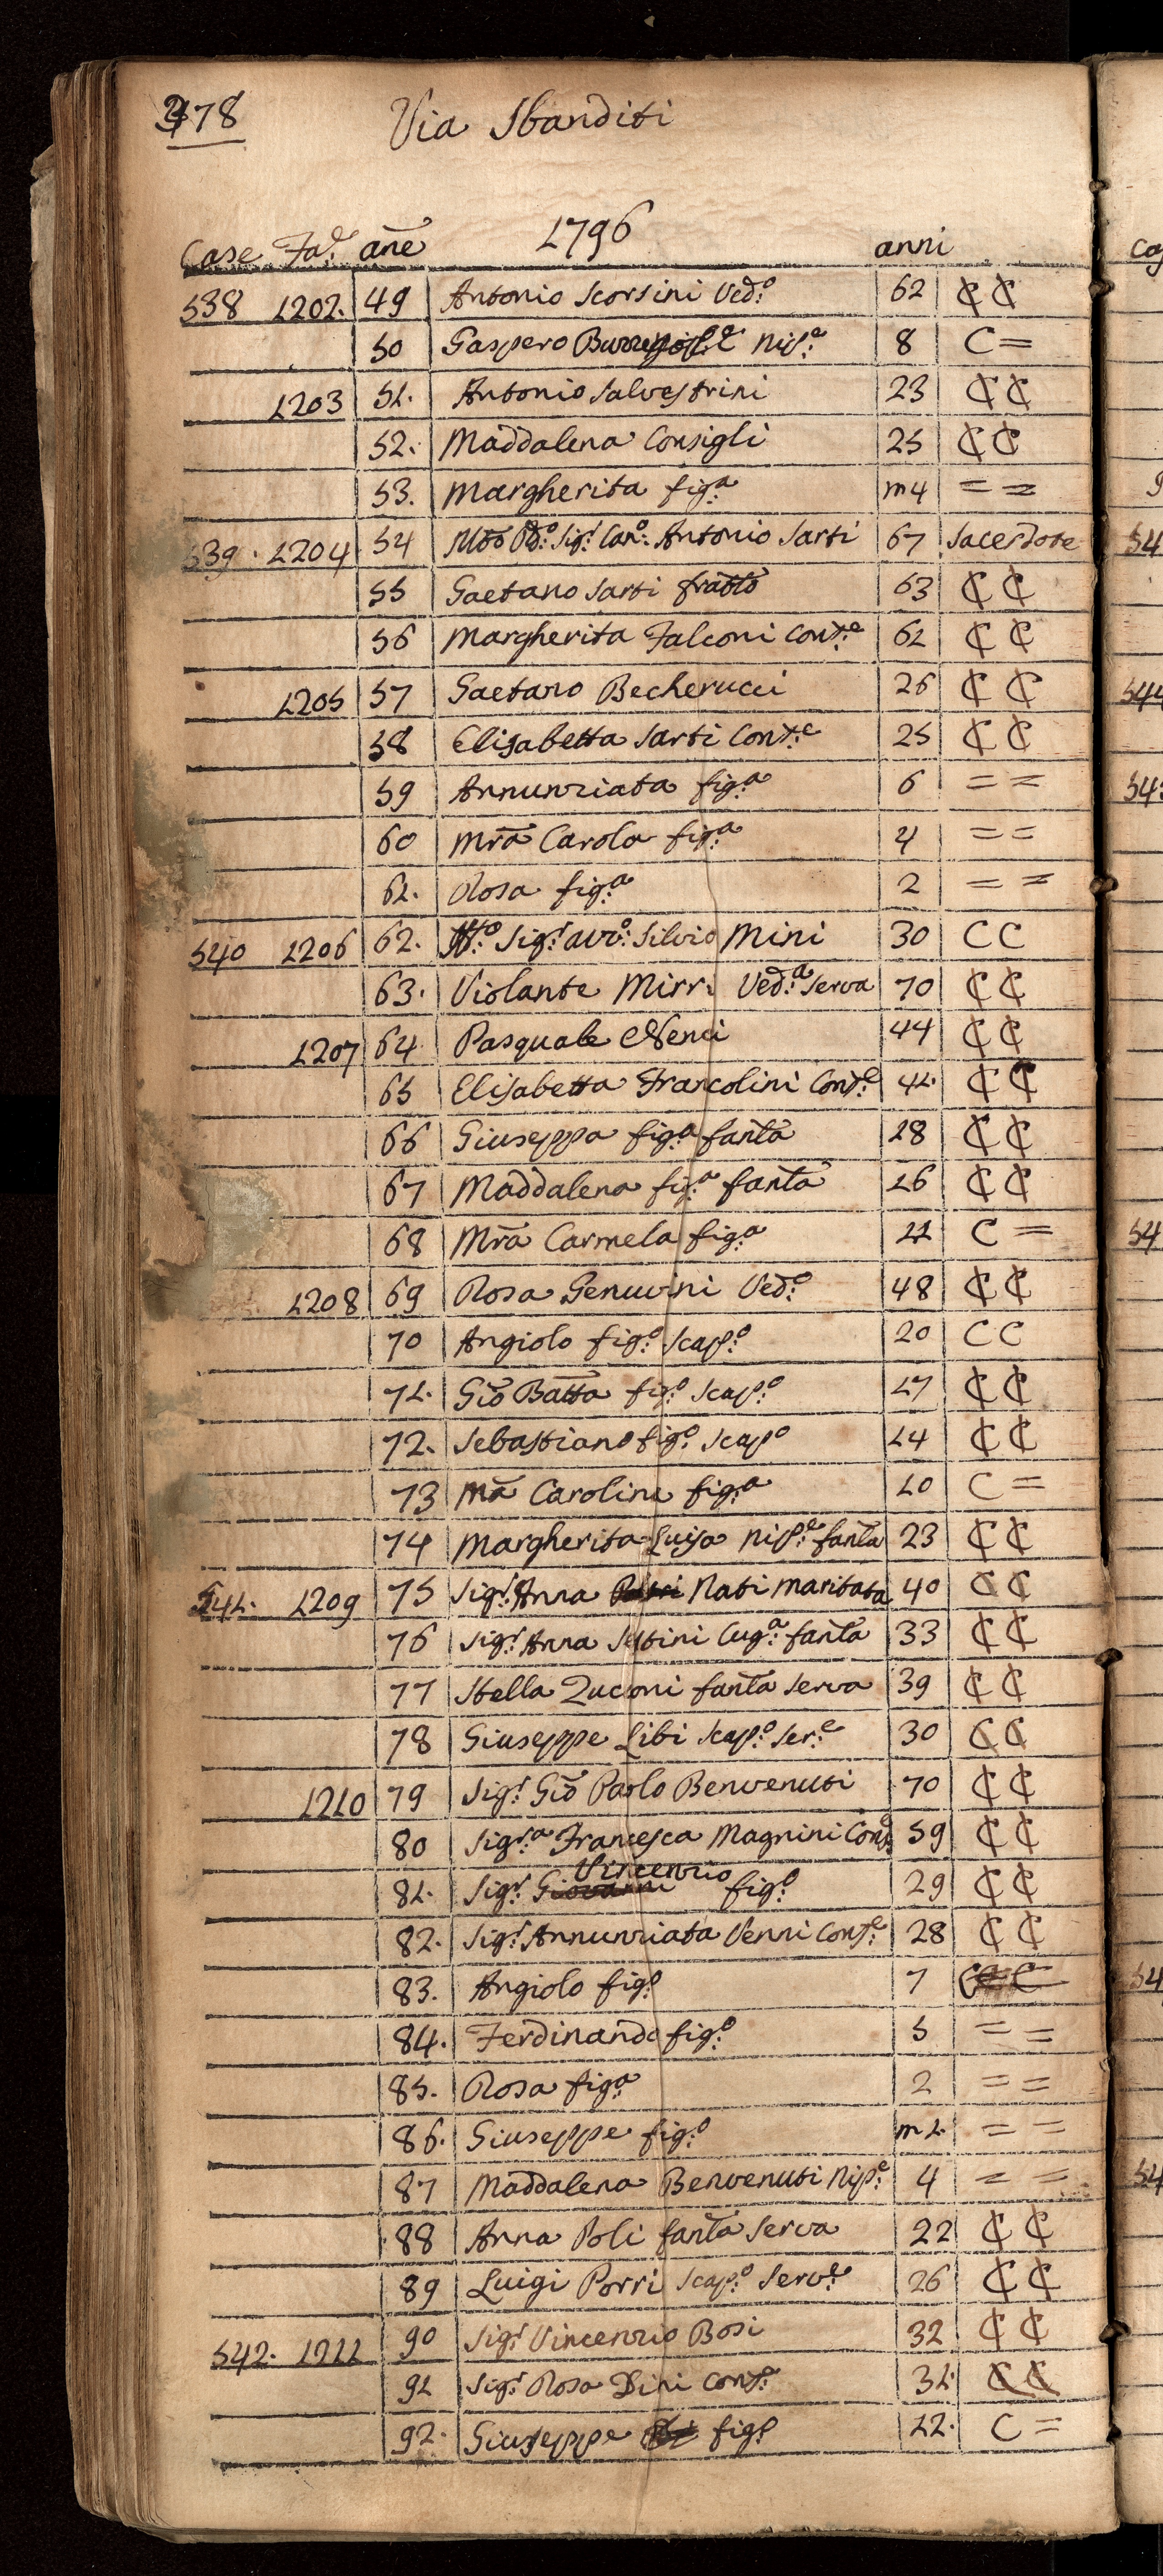 478
Via Sbanditi
1796
Case Fa.e añe anni
538 1202. 49 Antonio Scorsini Ved:o 62 C C
50 Gaspero Nip:e 8 C =
1203 51. Antonio Salvestrini 23 C C
52. Maddalena Consigli 25 C C
53. Margherita fig:a m4 = =
539. 1204. 54 Mõo Rd:o Sig:r Can:o Antonio Sarti 67 Sacerdote
55 Gaetano Sarti fratt̃o 63 C C
56 Margherita Falconi Cont:e 62 C C
1205 57 Gaetano Becherucci 26 C C
58 Elisabetta Sarti Cont:e 25 C C
59 Annunziata fig:a 6 = =
60 Mr̃a Carola fig:a 4 = =
61. Rosa fig:a 2 = =
540 1206 62. Sig:r avv:o Silvio Mini 30 C C
63. Violante Mirri Ved:a Serva 70 C C
1207 64 Pasquale Nenci 44 C C
65 Elisabetta Francolini Cont:e 41. C C
66 Giuseppa fig:a fanta 18 C C
67 Maddalena fig:a fanta 16 C C
68 Mr̃a Carmela fig:a 11 C =
1208 69 Rosa Genuini Ved:a 48 C C
70 Angiolo fig:o Scap:o 20 C C
71. Gio Batta fig:o Scap:o 17 C C
72. Sebastiano fig:o Scap:o 14 C C
73 Mã Carolina fig:a 10 C =
74 Margherita Luisa Nip:e fanta 23 C C
541. 1209 75 Sig:r Anna Nati Maritata 40 C C
76 Sig:r Anna Sestini Cug:a fanta 33 C C
77 Stella Zuconi fanta Serva 39 C C
78 Giuseppe Libi Scap:o Ser:e 30 C C
1210 79 Sig:r Gio Paolo Benvenuti 70 C C
80 Sig:ra Francesca Magnini Cont:e 59 C C
Vincenzio
81. Sig:r Giovanni fig:o 29 C C
82. Sig:r Annunziata Venni Cont:e 28 C C
83. Angiolo fig:o 7 C C
84. Ferdinando fig:o 5 = =
85. Rosa fig:a 2 = =
86. Giuseppe fig:o m1. = =
87 Maddalena Benvenuti Nip:e 4 = =
88 Anna Poli fanta Serva 22 C C
89 Luigi Porri Scap:o Serv:e 26 C C
542. 1211 90 Sig:r Vincenzio Bosi 32 C C
91 Sig:r Rosa Dini Cont:e 31. C C
92. Giuseppe fig:o 11. C =